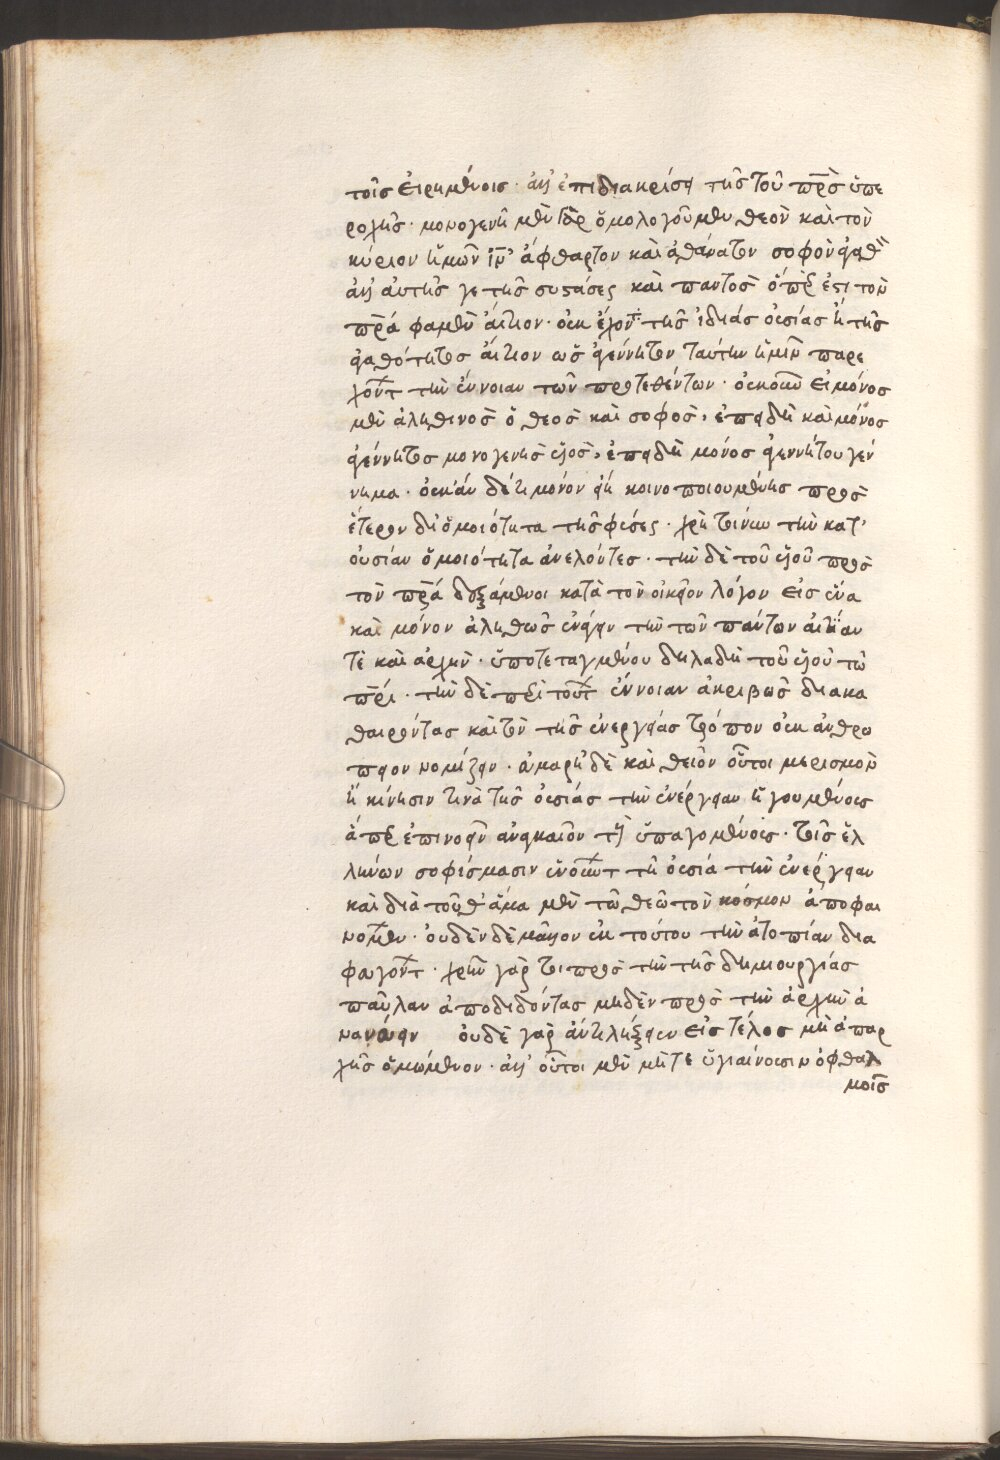 τοῖς εἰρημένοις · ἀλλ' ἐπιδιακρίσει τῆς τοῦ πρ̅ς̀ ὑπε
ροχῆς · μονογενῆ μὲν γὰρ ὁμολογοῦμεν θεὸν καὶ τὸν
κύριον ἡμῶν ἰν̅ ἄφθαρτον καὶ ἀθάνατον σοφὸν ἀγαθ̏
ἀλλ' αὐτῆς γε τῆς συστάσεως καὶ παντὸς ὅπερ ἐστι τὸν
πρ̅α φαμὲν αἴτιον · οὐκ ἔχοντα τῆς ἰδίας οὐσίας ἢ τῆς
ἀγαθότητος αἴτιον ὡς ἀγέννητον ταύτην ἡμῖν παρε
χόντων τὴν ἔννοιαν τῶν προτεθέντων · οὐκοῦν εἰ μόνος
μὲν ἀληθινὸς ὁ θεὸς καὶ σοφὸς, ἐπειδὴ καὶ μόνος
ἀγέννητος μονογενὴς υἱὸς, ἐπειδὴ μόνος ἀγεννήτου γέν
νημα · οὐκ ἂν δέ τι μόνον εἴη κοινοποιουμένης πρὸς
ἕτερον δι' ὁμοιότητα τῆς φύσεως · χρὴ τοίνυν τὴν κατ'
οὐσίαν ὁμοιότητα ἀνελόντες · τὴν δὲ τοῦ υἱοῦ πρὸς
τὸν πρ̅α δεξάμενοι κατὰ τὸν οἰκεῖον λόγον εἰς ἕνα
καὶ μόνον ἀληθῶς ἀνάγειν τὴν τῶν πάντων αἰτίαν
τὲ καὶ ἀρχὴν · ὑποτεταγμένου δηλαδὴ τοῦ υἱοῦ τῶ
πρ̅ι · τὴν δὲ περὶ τούτων ἔννοιαν ἀκριβῶς διακα
θαιρόντας καὶ τὸν τῆς ἐνεργείας τρόπον οὐκ ἀνθρω
πειον νομίζειν · δὲ καὶ θεῖον οὔτοι μερισμὸν
ἢ κίνησιν τινὰ τῆς οὐσίας τὴν ἐνέργειαν ἡγουμένους
ἅπερ ἐπινοεῖν ἀναγκαῖον τοῖς ὑπαγομένοις · τοῖς ἑλ
λήνων σοφίσμασιν ἑνούντων τῇ οὐσία τὴν ἐνέργειαν
καὶ διὰ τοῦθ' ἅμα μὲν τῶ θεῶ τὸν κόσμον ἀποφαι
νομένων · οὐδὲν δὲ μᾶλλον ἐκ τούτου τὴν ἀτοπίαν δια
φυγόντων · χρῆν γάρ τοι πρὸς τὴν τῆς δημιουργίας
παῦλαν ἀποδιδόντας μηδὲν πρὸς τὴν ἀρχὴν ἀ
νανεύειν οὐδὲ γὰρ ἀντιλήξειεν εἰς τέλος μὴ ἀπαρ
χῆς ὁρμώμενον · ἀλλ' οὗτοι μὲν μήτε ὑγιαίνουσιν ὀφθαλ
μοῖς